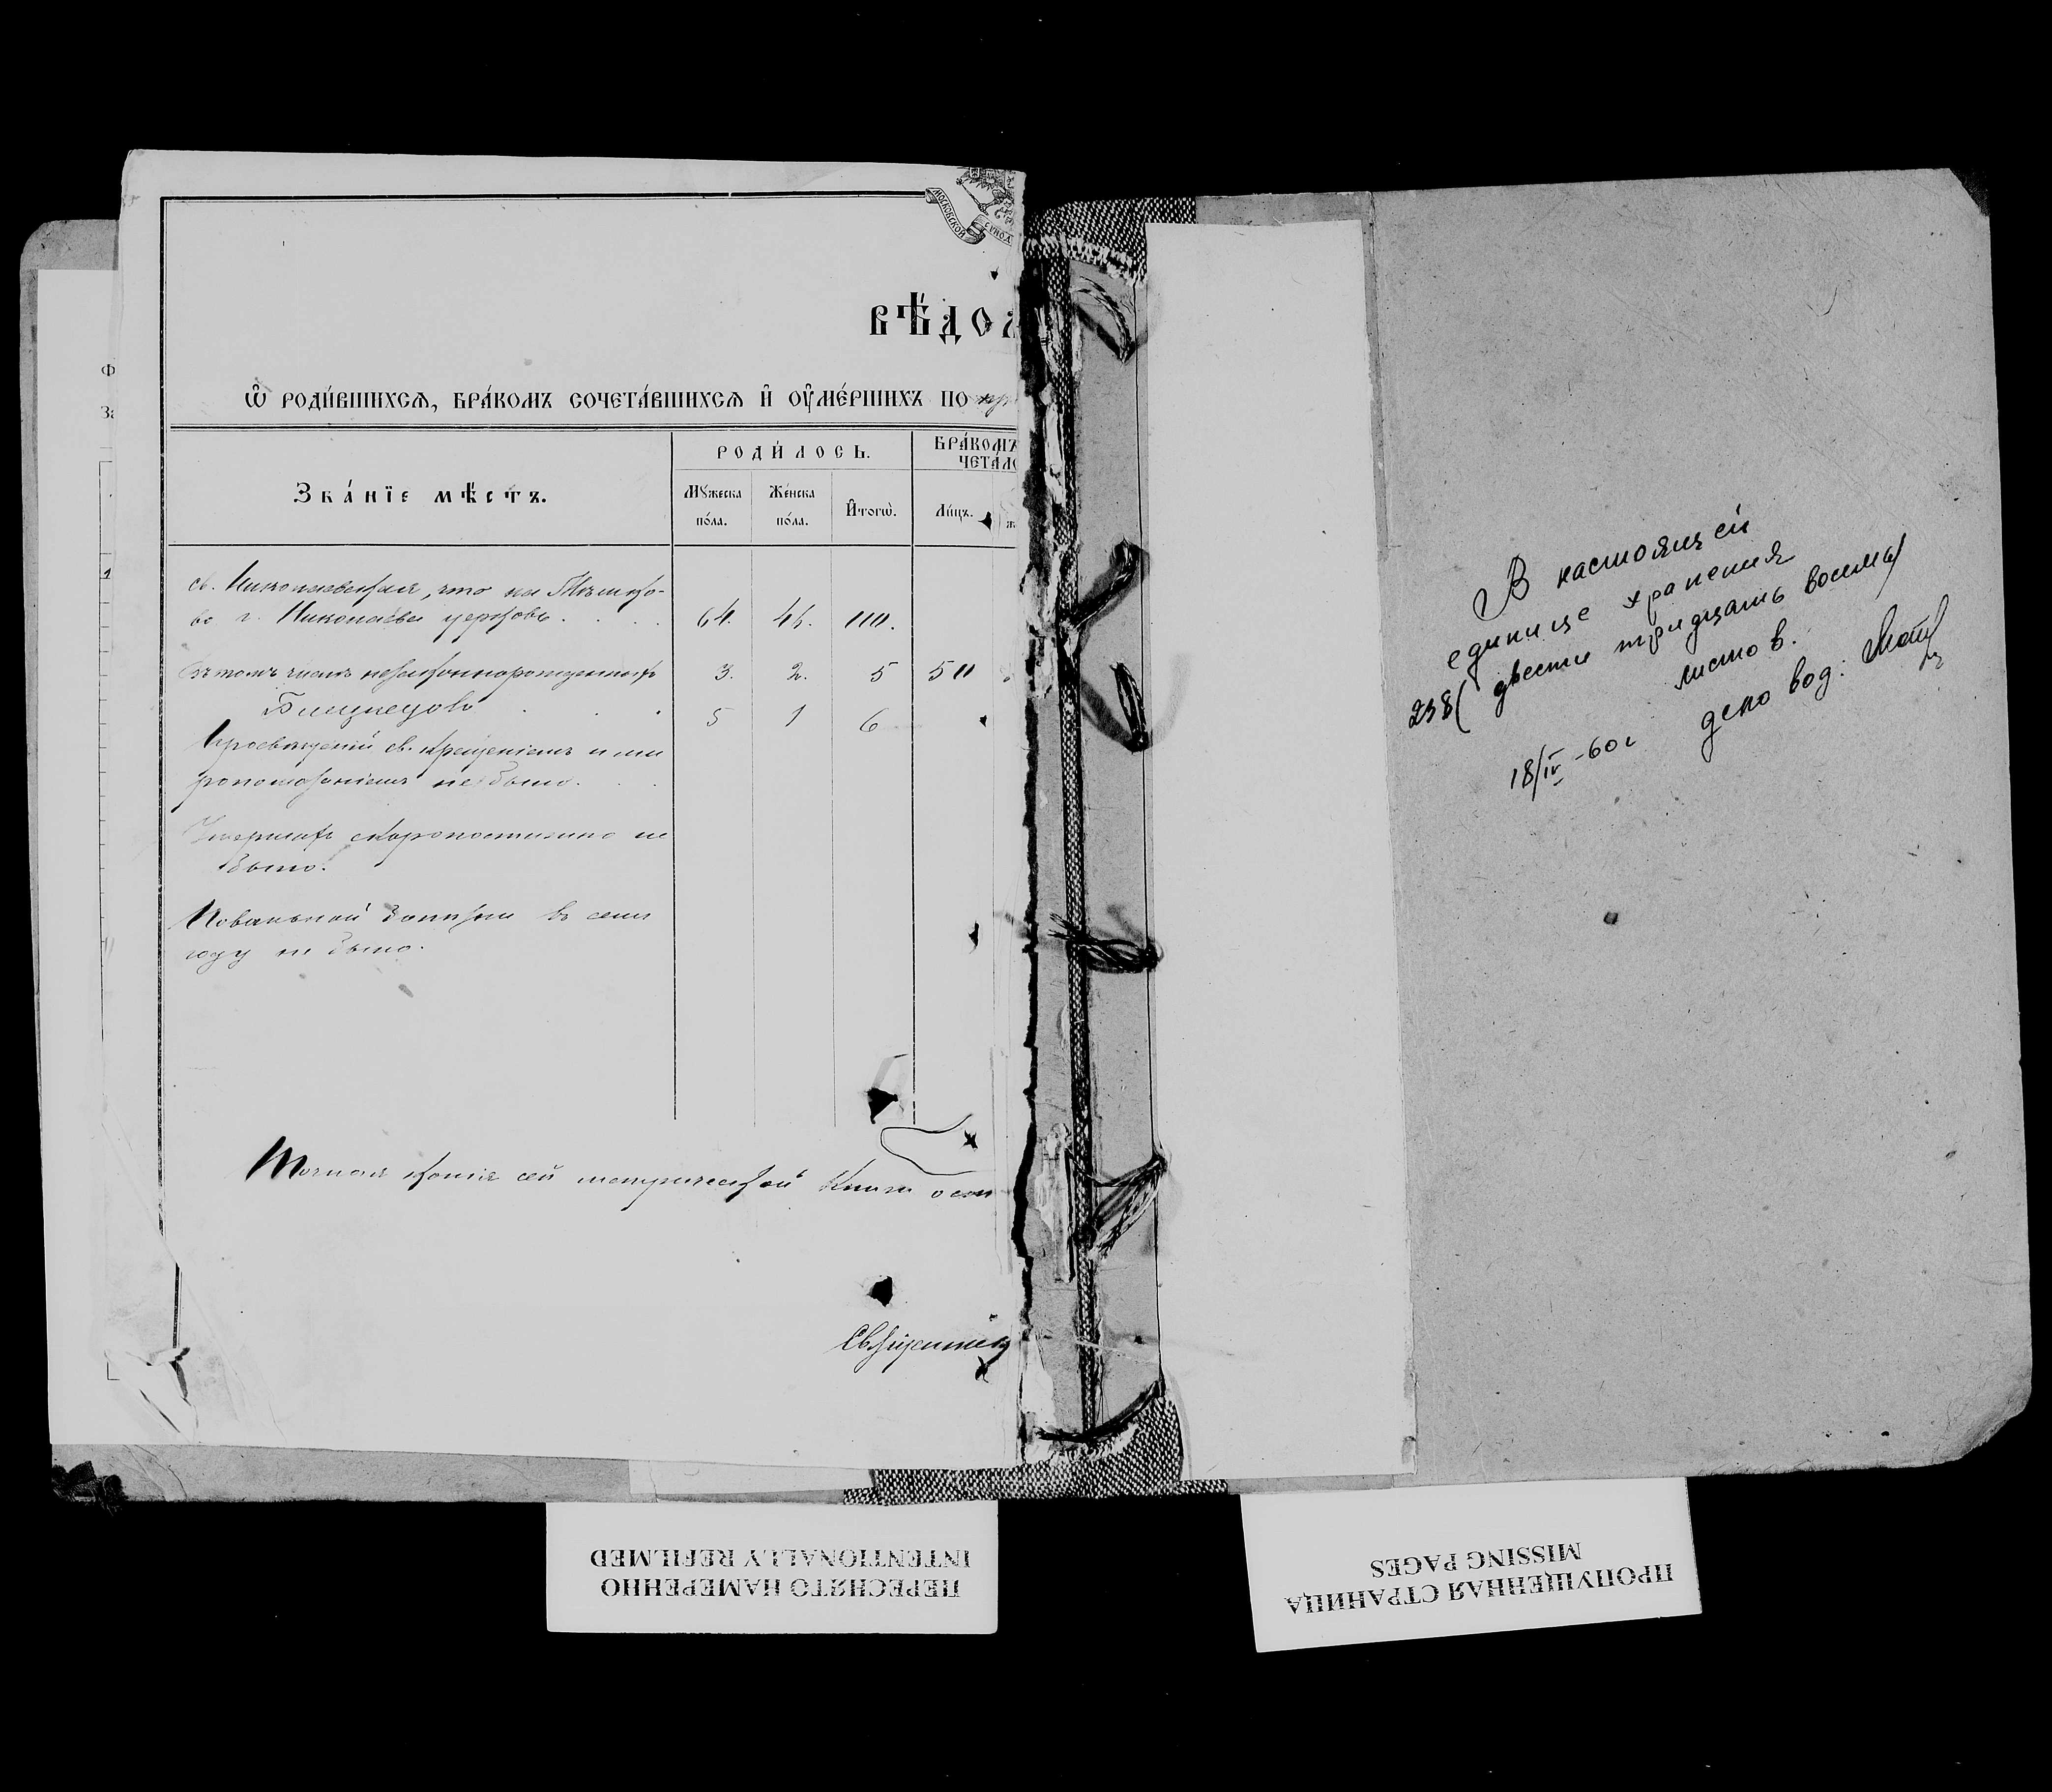 МОСКОВСКОЙ
СѴНОД
вѣдо
Ѡ роди́вшихсѧ, бра́комъ сочета́вшихсѧ и҆ оу҆ме́ршихъ по
Зва́нїе мѣ́стъ.
роди́лось.
бра́комъ
чета́ло
Мꙋ́жеска
по́ла.
Же́нска
по́ла.
И҆тогѡ̀.
Ли́цъ.
св. Николаевская, что на
во г. Николаевѣ церковь . . . .
64. 46. 110.
Въ томъ числѣ незаконнорожденныхъ
3. 2. 5 50
Близнецовъ . . .
5 1 6
Просвѣщеній св. крещеніемъ и ми
ропомазаніемъ не было. . .
Умершихъ скоропостижно не
было.
Повальной болѣзни въ семъ
году не было.
Точная копія сей метрической книги
Священникъ
Ф
За
1
В настоящей
единице хранения
238 (двести тридцать восемь)
листов.
18/IV -60 г
дело вод.
ПЕРЕСНЯТО НАМЕРЕННО
INTENTIONALLY REFILMED
ПРОПУЩЕННАЯ СТРАНИЦА
MISSING PAGES